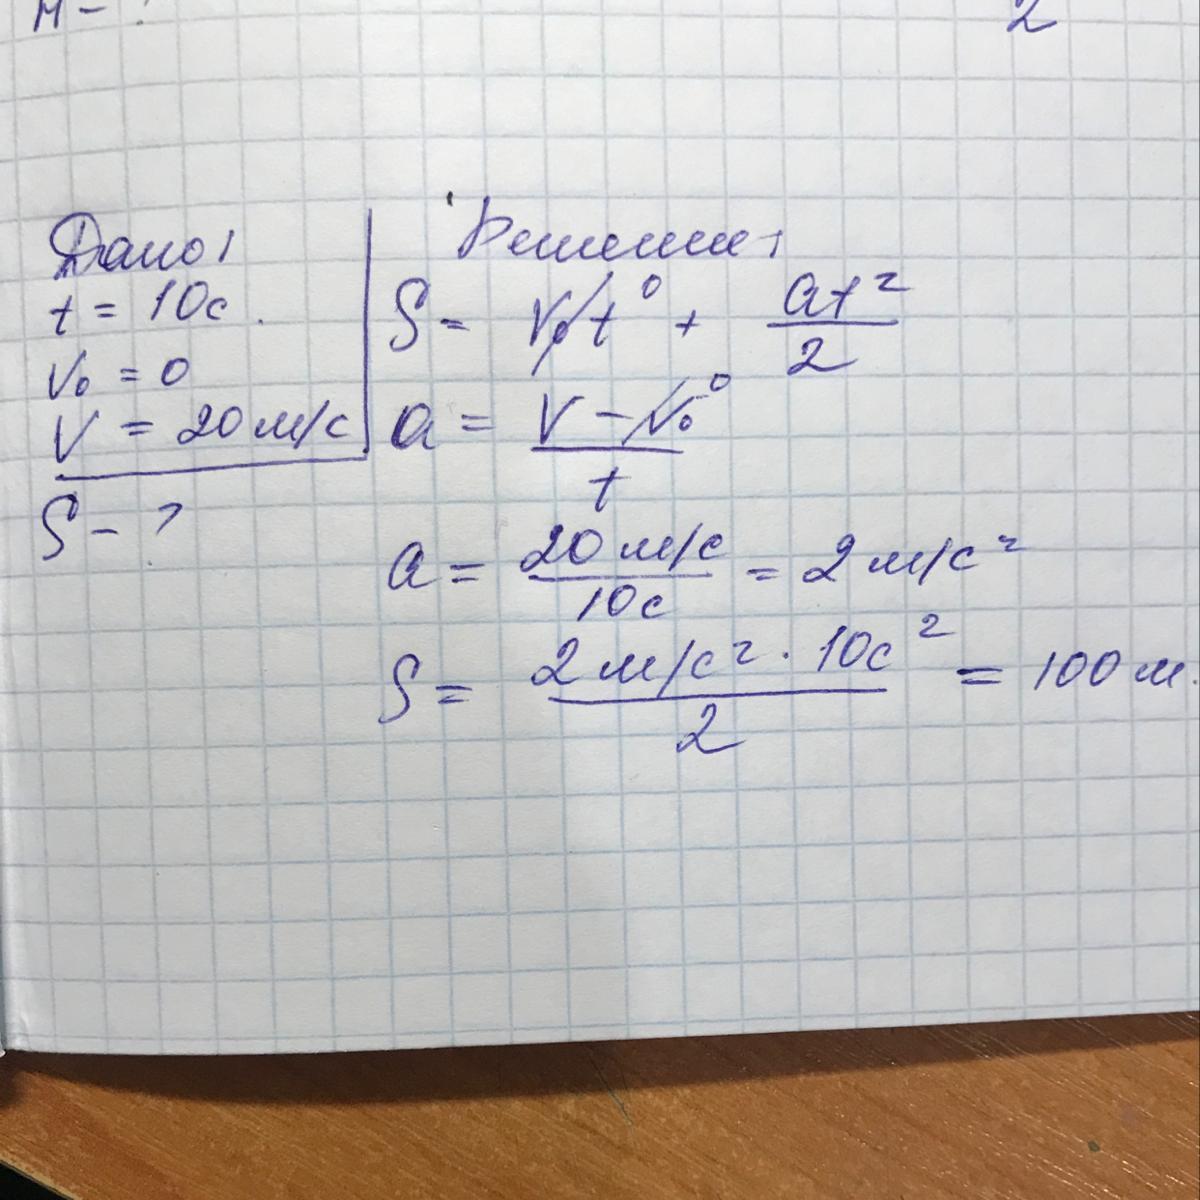 H - ?
2
Дано:
t = 10с.
V₀ = 0
V = 20 м/с
S - ?
Решение:
S = V₀t⁰ + at²/2
a = V - V₀⁰/t
a = 20 м/с/10с = 2 м/с²
S = 2 м/с² · 10с²/2 = 100 м.